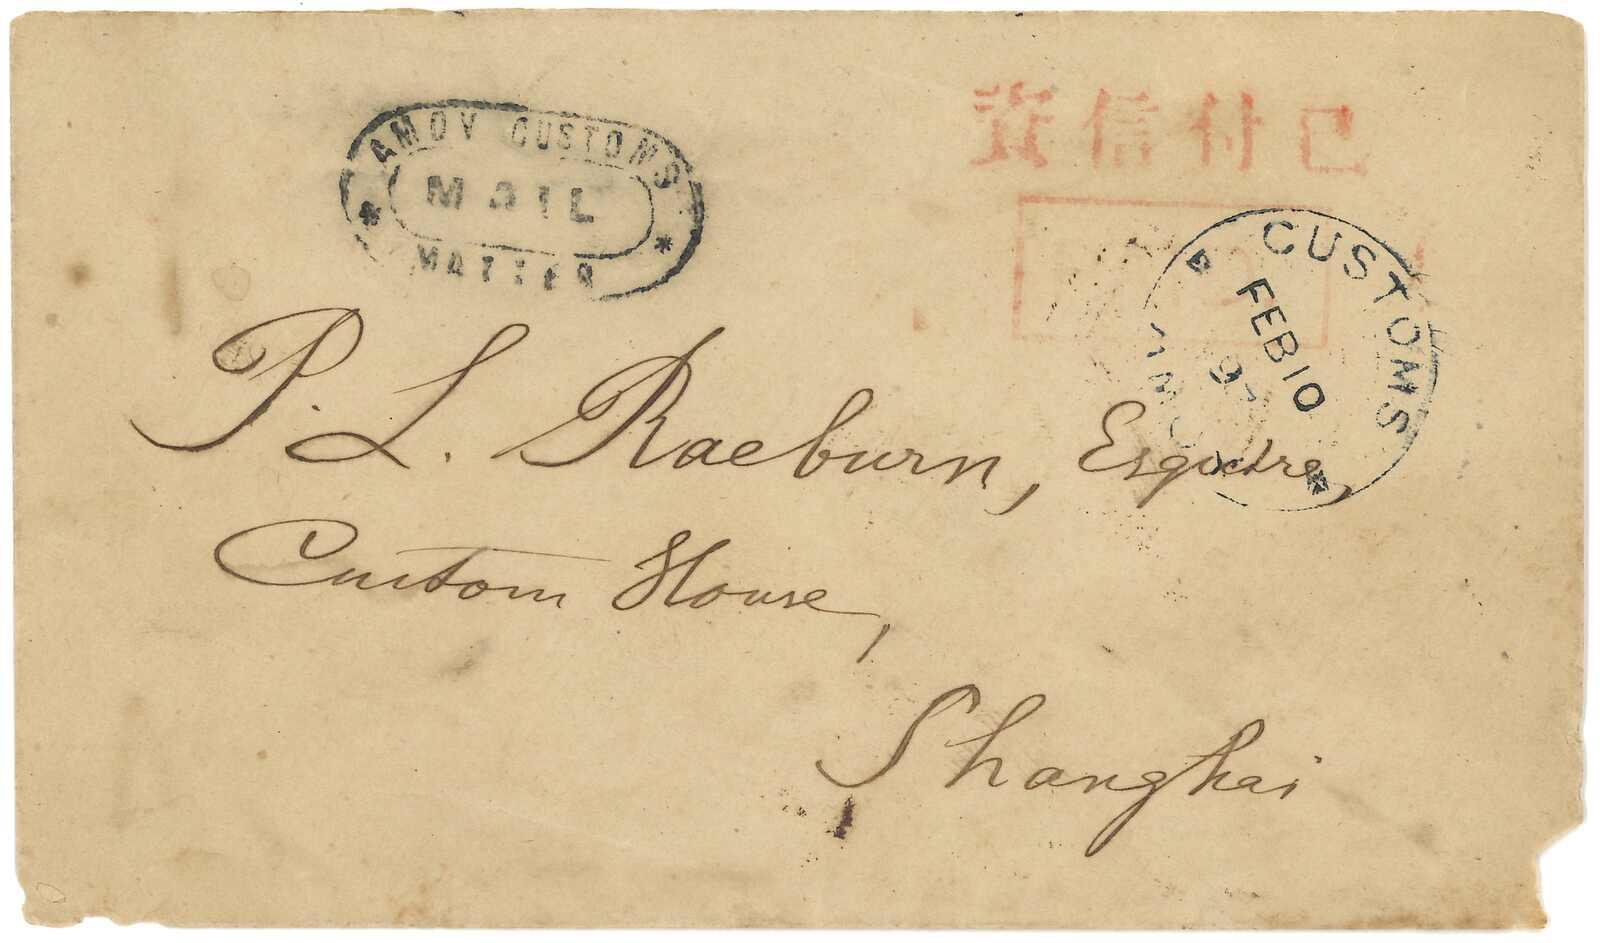 AMOY CUSTOMS
MAIL
MATTER
已付信資
CUSTOMS
FEB 10
97
AMOY
P. L. Raeburn, Esquire,
Custom House,
Shanghai